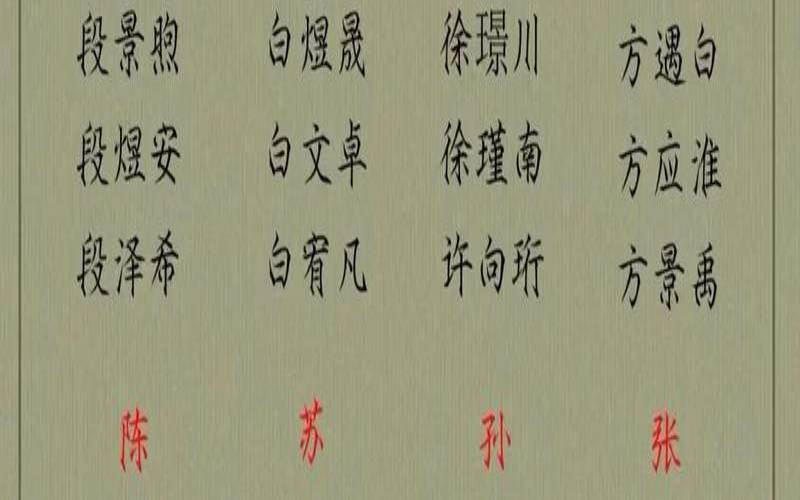 段景煦 白煜晟 徐璟川 方遇白
段煜安 白文卓 徐瑾南 方应淮
段泽希 白宥凡 许向珩 方景禹
陈 苏 孙 张